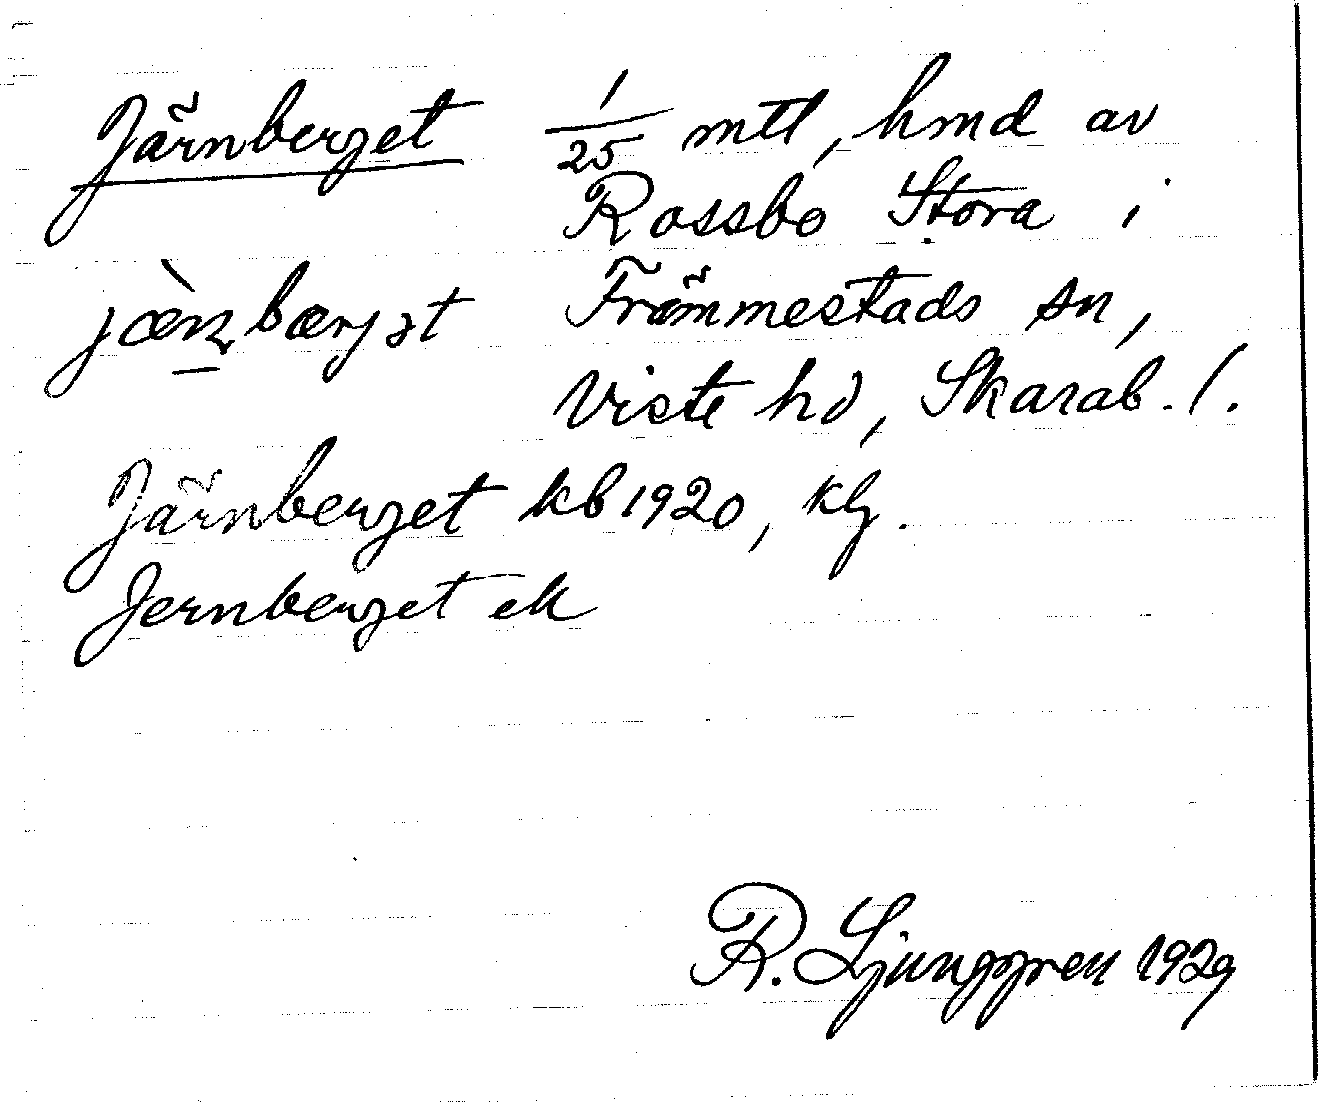 Järnberget 1/25 mtl, hmd av
Rossbo Stora i
jæ̀ɳbærjət Främmestads sn,
Viste hd, Skarab. l.
Järnberget kb 1920, klg.
Jernberget ek
R. Ljunggren 1929